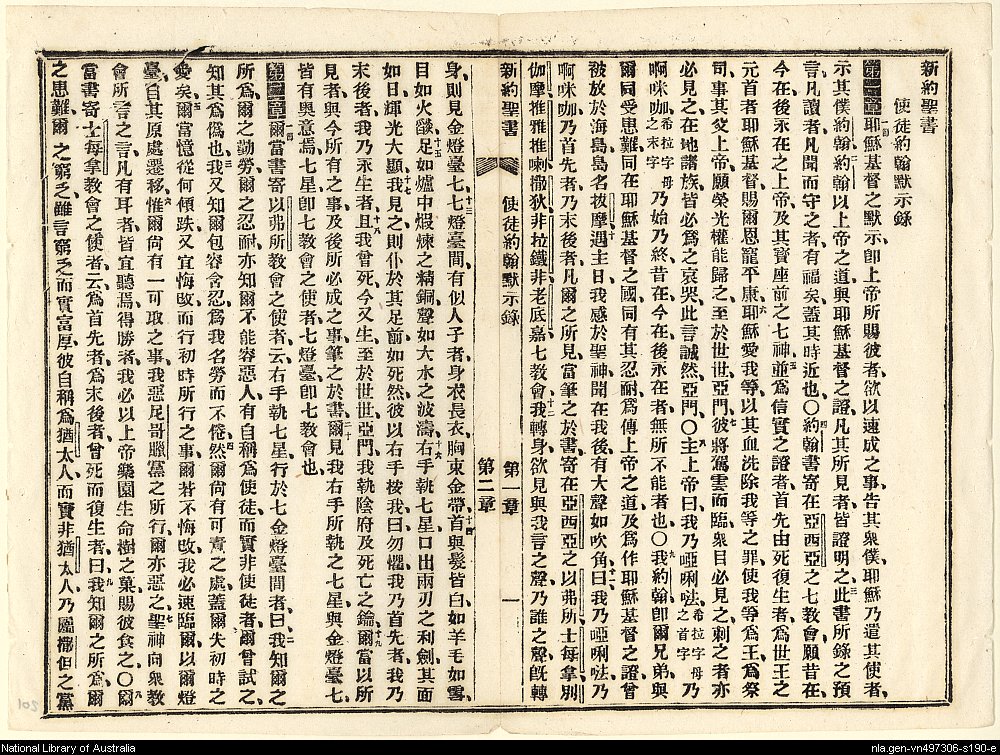 新約聖書
使徒約翰默示錄
第一章耶穌基督之默示、卽上帝所賜彼者、欲以速成之事、告其衆僕、耶穌乃遣其使者、
示其僕約翰、約翰以上帝之道、與耶穌基督之證、凡其所見者、皆證明之、此書所錄之預
言、凡讀者、凡聞而守之者、有福矣、蓋其時近也〇約翰書寄在亞西亞之七教會、願昔在、
今在、後永在之上帝、及其寶座前之七神、並爲信實之證者、首先由死復生者、爲世王之
元首者、耶穌基督、賜爾恩寵平康、耶穌愛我等、以其血洗除我等之罪、使我等爲王、爲祭
司、事其父上帝、願榮光權能歸之、至於世世、亞門、彼將駕雲而臨、衆目必見之、刺之者亦
必見之、在地諸族、皆必爲之哀哭、此言誠然、亞門、〇主上帝曰、我乃啞唎 希拉字母之首字 乃
啊咪咖 希拉字母之末字 乃始乃終、昔在今在後永在者、無所不能者也〇我約翰卽爾兄弟、與
爾同受患難、同在耶穌基督之國、同有其忍耐、爲傳上帝之道、及爲作耶穌基督之證、曾
被放於海島、島名拔摩、遇主日、我感於聖神、聞在我後有大聲如吹角、曰、我乃啞唎 乃
啊咪咖、乃首先者、乃末後者、凡爾之所見、當筆之於書、寄在亞西亞之以弗所士每拿別
伽摩推雅推喇撒狄非拉鐵非老底嘉七教會、我轉身、欲見與我言之聲、乃誰之聲、旣轉
新約聖書 使徒約翰默示錄 第一章 第二章 一
身、則見金燈臺七、七燈臺間、有似人子者、身衣長衣、胸束金帶、首與髮皆白、如羊毛如雪、
目如火燄、足如爐中煆煉之精銅、聲如大水之波濤、右手執七星、口出兩刃之利劍、其面
如日輝光大顯、我見之、則仆於其足前如死然、彼以右手按我曰、勿懼、我乃首先者、我乃
末後者、我乃永生者、且我曾死、今又生、至於世世、亞門、我執陰府及死亡之鑰、爾當以所
見者、與今所有之事、及後所必成之事、筆之於書、爾見我右手所執之七星、與金燈臺七、
皆有奧意焉、七星卽七教會之使者、七燈臺、卽七教會也
第二章爾當書寄以弗所教會之使者、云、右手執七星、行於七金燈臺間者曰、我知爾之
所爲、爾之勤勞、爾之忍耐、亦知爾不能容惡人、有自稱爲使徒、而實非使徒者、爾曾試之、
知其爲僞也、我又知爾包容含忍、爲我名勞而不倦、然爾尙有可責之處、蓋爾失初時之
愛矣、爾當憶從何傾跌、又宜悔改、而行初時所行之事、爾若不悔改、我必速臨爾、以爾燈
臺、自其原處遷移、惟爾尙有一可取之事、我惡尼哥臘黨之所行、爾亦惡之、聖神向衆教
會所言之言、凡有耳者、皆宜聽焉、得勝者、我必以上帝樂園生命樹之菓、賜彼食之、〇爾
當書寄士每拿教會之使者、云、爲首先者、爲末後者、曾死而復生者、曰、我知爾之所爲、爾
之患難、爾之窮乏、雖言窮乏、而實富厚、彼自稱爲猶太人、而實非猶太人、乃屬撒但之黨
National Library of Australia
nla.gen-vn497306-s190-e